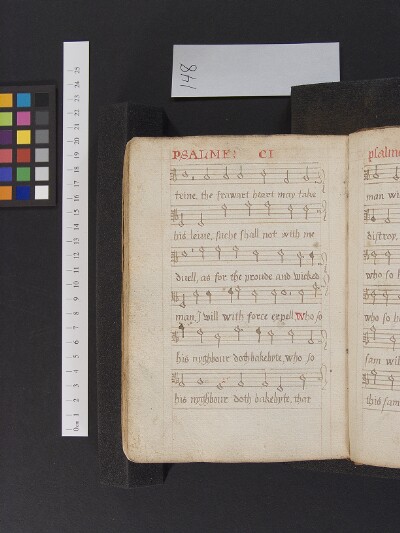 148
PSALME: CI
teine, the frawart heart may take
his leive, suche shall not with me
duell, as for the proude and wicked
man, J will with force expell, Who so
his nyghbour doth bakebyte, who so
his nyghbour doth bakebyte, that
psalme
man wi
distroy,
who so h
who so b
fam wil
this fam
0cm 1 2 3 4 5 6 7 8 9 10 11 12 13 14 15 16 17 18 19 20 21 22 23 24 25